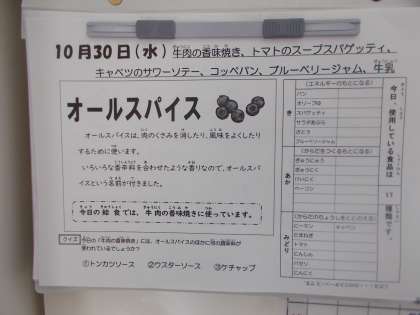 10月30日(水) 牛肉の香味焼き、トマトのスープスパゲッティ、
キャベツのサワーソテー、コッペパン、ブルーベリージャム、牛乳
オールスパイス
オールスパイスは、肉のくさみを消したり、風味をよくしたり
するために使います。
いろいろな香辛料を合わせたような香りなので、オールスパ
イスという名前が付きました。
今日の給食では、牛肉の香味焼きに使っています。
クイズ 今日の「牛肉の香味焼き」には、オールスパイスのほかに何の調味料が
使われているでしょうか?
①トンカツソース ②ウスターソース ③ケチャップ
今日、使用している食品は 17 種類です。
き
(エネルギーのもとになる)
パン
オリーブ油
スパゲッティ
サラダあぶら
さとう
ブルーベリージャム
あか
(からだをつくるもとになる)
ぎゅうにゅう
ぎゅうにく
だいにく
ベーコン
みどり
(からだのちょうしをととのえる)
ピーマン
キャベツ
たまねぎ
トマト
にんじん
パセリ
にんにく